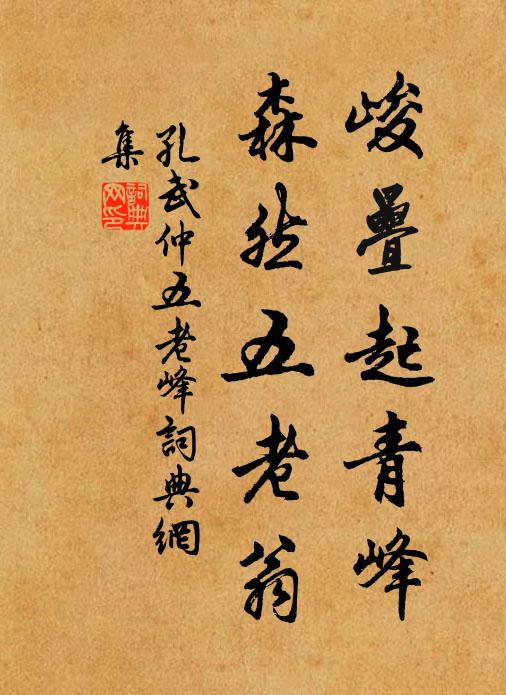 峻疊起青峰
森然五老翁
孔武仲五老峰詞典網
集
詞典
网印